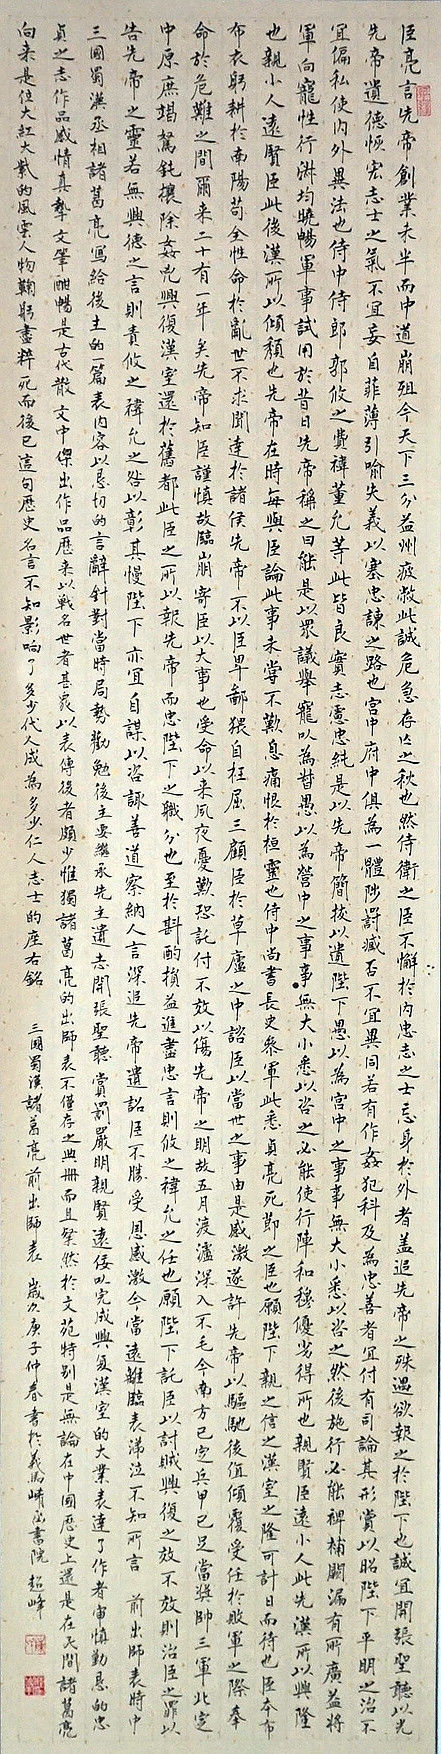 臣亮言先帝創業未半而中道崩殂今天下三分益州疲敝此誠危急存亡之秋也然侍衛之臣不懈於內忠志之士忘身於外者蓋追先帝之殊遇欲報之於陛下也誠宜開張聖聽以光
先帝遺德恢宏志士之氣不宜妄自菲薄引喻失義以塞忠諫之路也宮中府中俱為一體陟罰臧否不宜異同若有作姦犯科及為忠善者宜付有司論其形賞以昭陛下平明之治不
宜偏私使內外異法也侍中侍郎郭攸之費禕董允等此皆良實志慮忠純是以先帝簡拔以遺陛下愚以為宮中之事事無大小悉以咨之然後施行必能裨補闕漏有所廣益將
軍向寵性行淑均曉暢軍事試用於昔日先帝稱之曰能是以眾議舉寵以為督愚以為營中之事事無大小悉以咨之必能使行陣和穆優劣得所也親賢臣遠小人此先漢所以興隆
也親小人遠賢臣此後漢所以傾頹也先帝在時每與臣論此事未嘗不歎息痛恨於桓靈也侍中尚書長史參軍此悉貞亮死節之臣也願陛下親之信之漢室之隆可計日而待也臣本布
布衣躬耕於南陽苟全性命於亂世不求聞達於諸侯先帝不以臣卑鄙猥自枉屈三顧臣於草廬之中諮臣以當世之事由是感激遂許先帝以驅馳後值傾覆受任於敗軍之際奉
命於危難之間爾来二十有一年矣先帝知臣謹慎故臨崩寄臣以大事也受命以来夙夜憂歎恐託付不效以傷先帝之明故五月渡瀘深入不毛今南方已定兵甲已足當獎帥三軍北定
中原庶竭駑鈍攘除姦兇興復漢室還於舊都此臣之所以報先帝而忠陛下之職分也至於斟酌損益進盡忠言則攸之禕允之任也願陛下託臣以討賊興復之效不效則治臣之罪以
告先帝之靈若無興德之言則責攸之禕允之咎以彰其慢陛下亦宜自謀以咨諏善道察納人言深追先帝遺詔臣不勝受恩感激今當遠離臨表涕泣不知所言　前出師表時中
三國蜀漢丞相諸葛亮寫給後主的一篇表內容以恳切的言辭針對當時局勢勸勉後主要繼承先主遺志開張聖聽賞罰嚴明親賢遠佞以完成興复漢室的大業表達了作者审慎勤恳的忠
貞之志作品感情真摯文筆酣暢是古代散文中傑出作品歷来以戰名世者甚衆以表傳後者頗少惟獨諸葛亮的出師表不僅存之典冊而且粲然於文苑特别是無論在中國歷史上還是在民間諸葛亮
向来是位大紅大紫的風雲人物鞠躬盡粹死而後已這句歷史名言不知影响了多少代人成為多少仁人志士的座右銘　三國蜀漢諸葛亮前出師表　歲次庚子仲春書於義馬峰書院　超峰